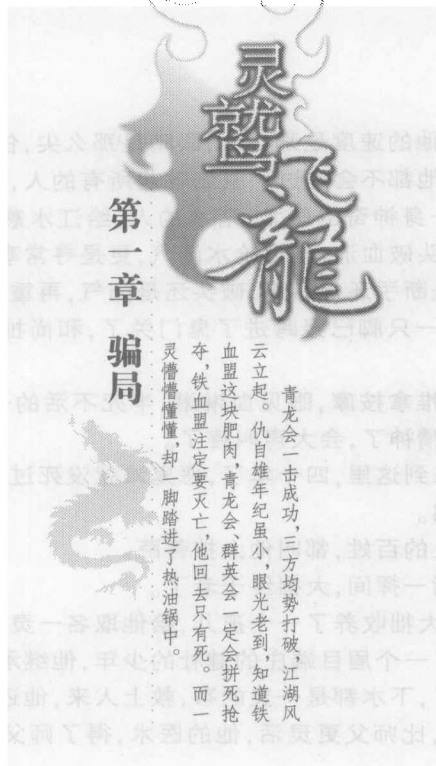 灵鹫飞龍
第一章 骗局
青龙会一击成功,三方均势打破,江湖风
云立起。仇自雄年纪虽小,眼光老到,知道铁
血盟这块肥肉,青龙会、群英会一定会拼死抢
夺,铁血盟注定要灭亡,他回去只有死。而一
灵懵懵懂懂,却一脚踏进了热油锅中。